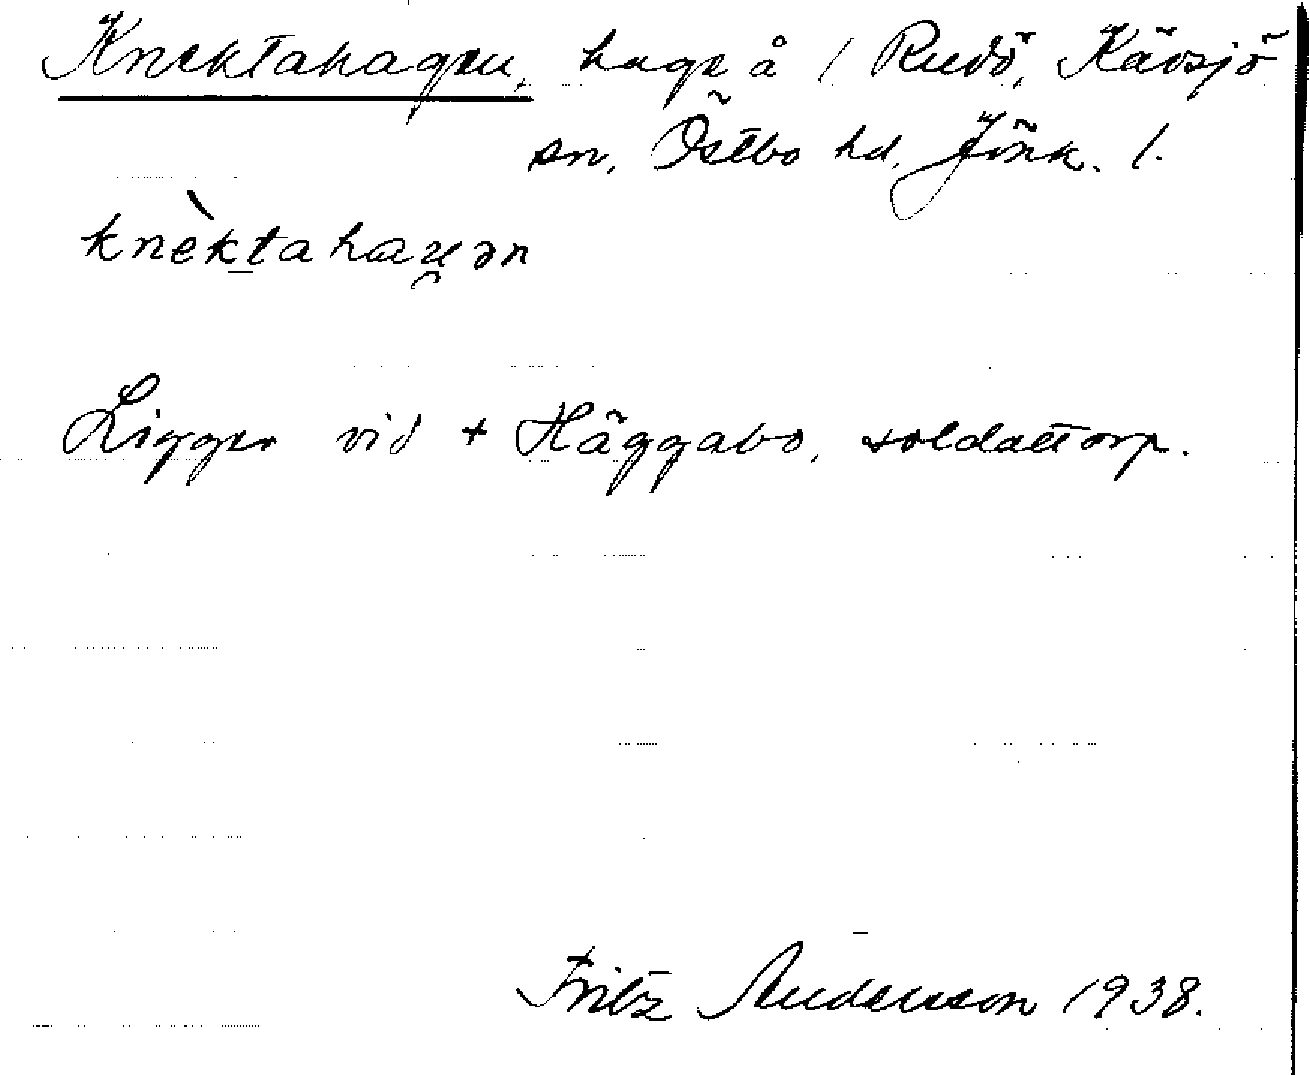 Knektahagen, hage å / Rudö, Kävsjö
sn, Östbo hd, Jönk. l.
knèktahaɣən
Ligger vid + Häggabo, soldattorp.
Fritz Andersson 1938.